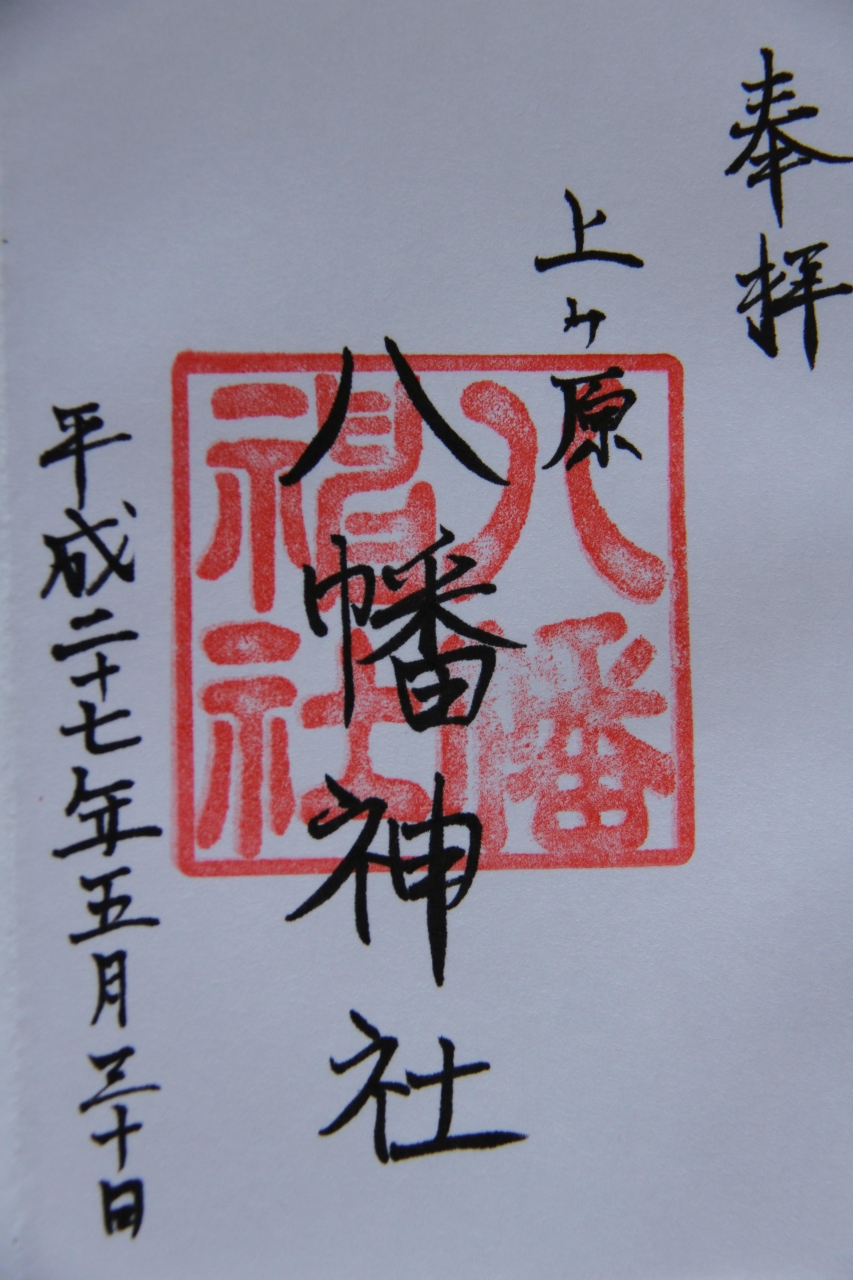 奉拝
上ヶ原
八幡神社
平成二十七年五月三十日
八幡
神社